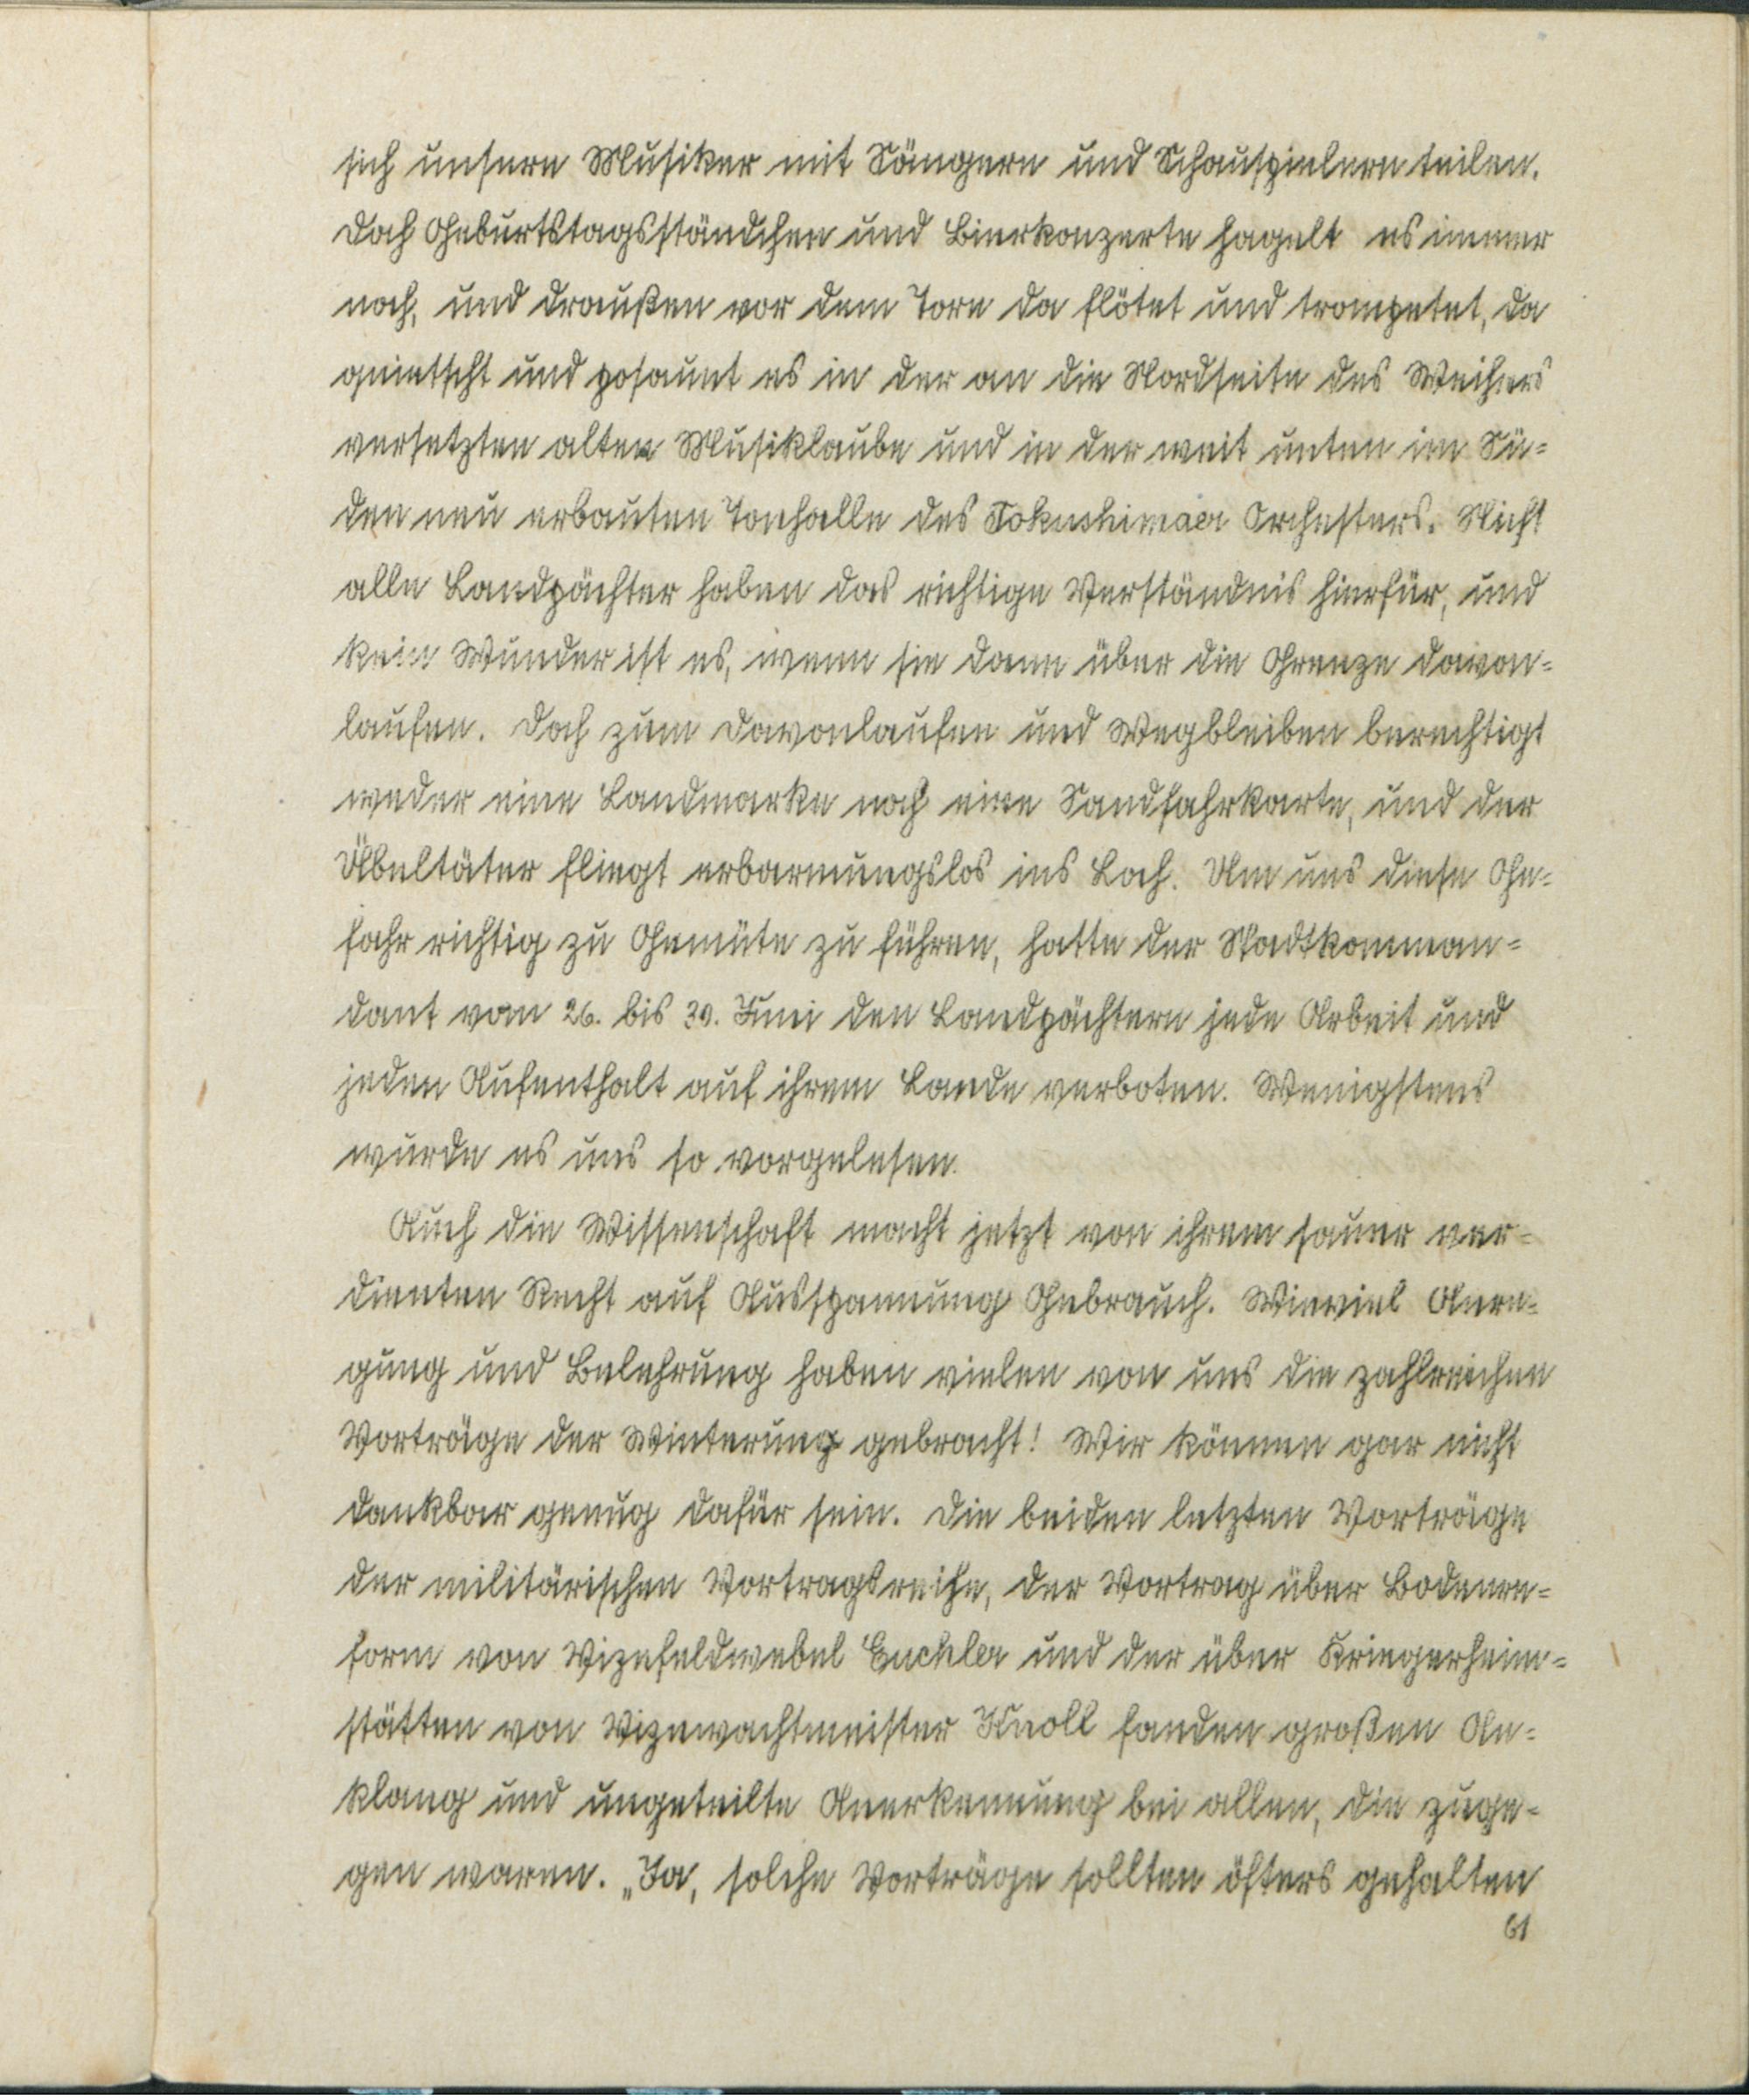 sich unsere Musiker mit Sängern und Schauspielern teilen.
Doch Geburtstagsständchen und Bierkonzerte hagelt es immer
noch, und draußen vor dem Tore da flötet und trompetet, da
quietscht und posaunt es in der an die Nordseite des Weihers
versetzten alten Musiklaube und in der weit unten im Sü-
den neu erbauten Tonhalle des Tokushimaer Orchesters. Nicht
alle Landpächter haben das richtige Verständnis hierfür, und
kein Wunder ist es, wenn sie dann über die Grenze davon-
laufen. Doch zum Davonlaufen und Wegbleiben berechtigt
weder eine Landmarke noch eine Sandfahrkarte, und der
Übeltäter fliegt erbarmungslos ins Loch. Um uns diese Ge-
fahr richtig zu Gemüte zu führen, hatte der Stadtkomman-
dant vom 26. bis 30. Juni den Landpächtern jede Arbeit und
jeden Aufenthalt auf ihrem Lande verboten. Wenigstens
wurde es uns so vorgelesen.
Auch die Wissenschaft macht jetzt von ihrem sauer ver-
dienten Recht auf Ausspannung Gebrauch. Wieviel Anre-
gung und Belehrung haben vielen von uns die zahlreichen
Vorträge der Winterung gebracht! Wir können gar nicht
dankbar genug dafür sein. Die beiden letzten Vorträge
der militärischen Vortragsreihe, der Vortrag über Bodenre-
form von Vizefeldwebel Buchler und der über Kriegerheim-
stätten von Vizewachtmeister Knoll fanden großen An-
klang und ungeteilte Anerkennung bei allen, die zuge-
gen waren. „Ja, solche Vorträge sollten öfters gehalten
61